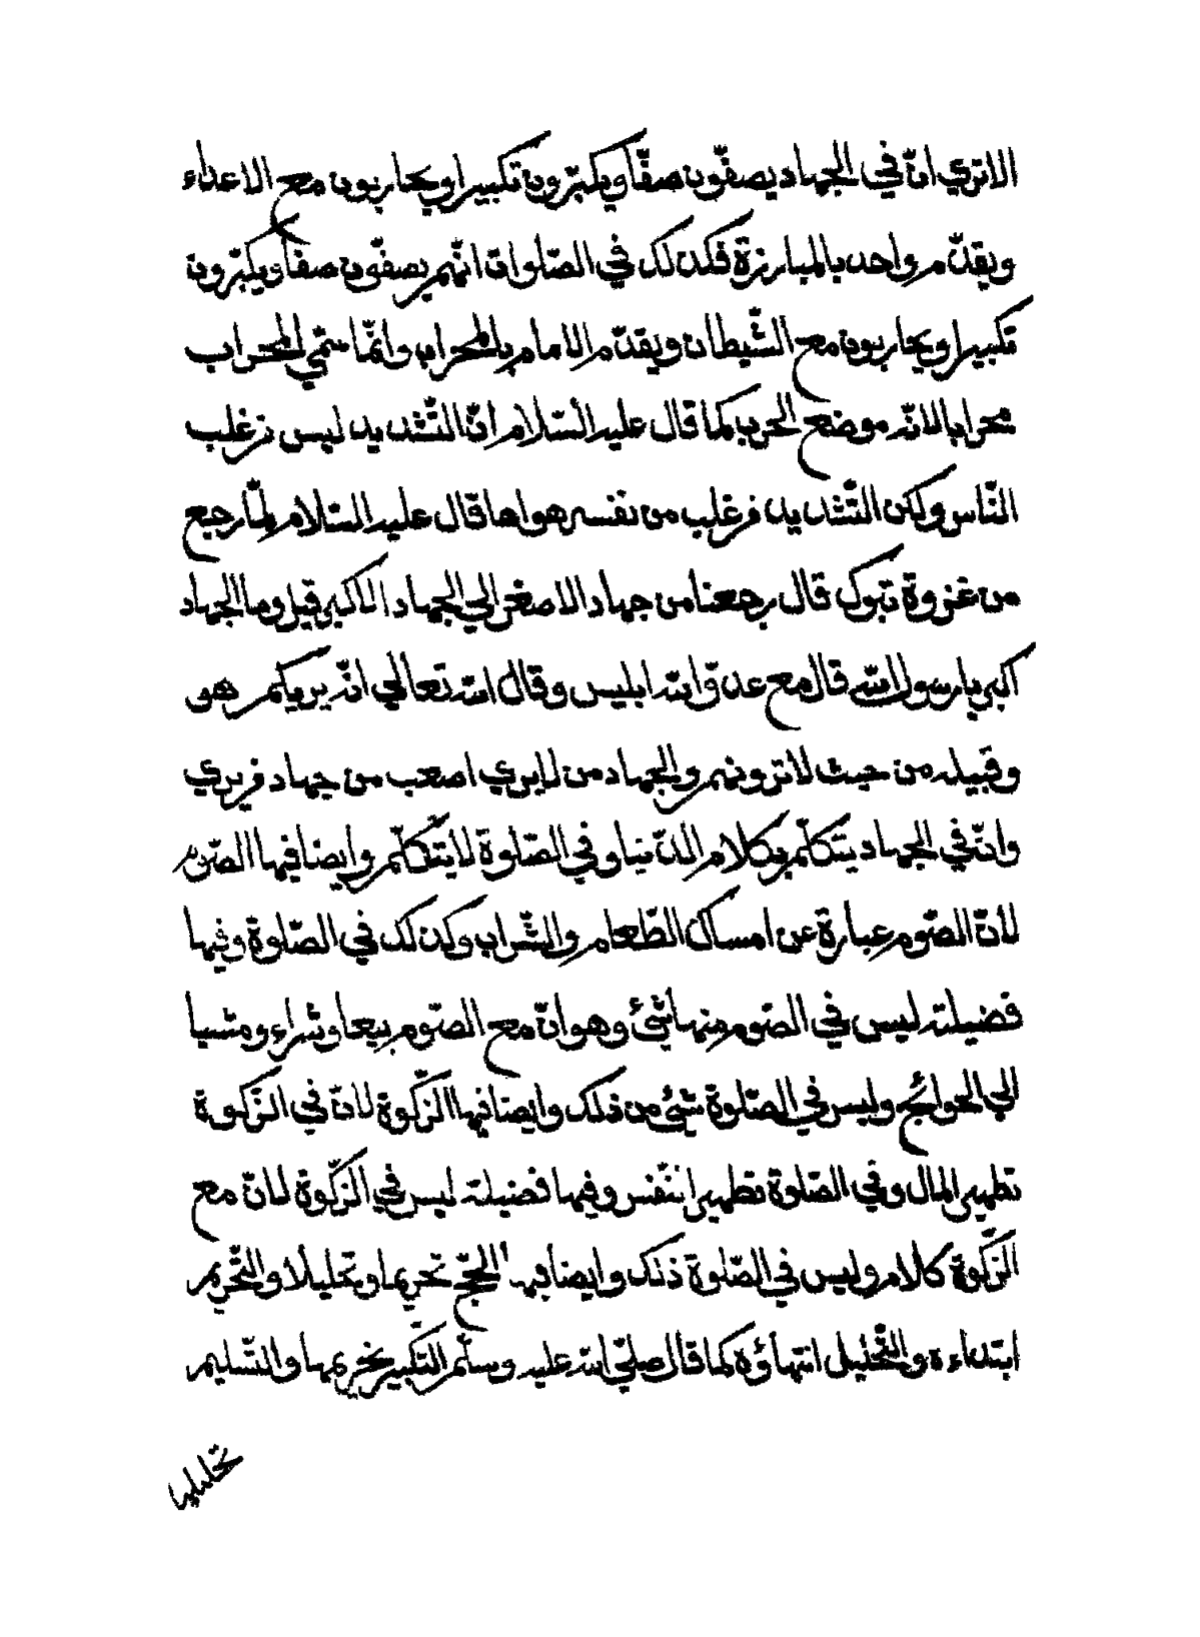 الاتري انّ في الجهاد يصفّون صفّا ويكبّرون تكبيرا ويحاربون مع الاعداء
ويقدّم واحد بالمبارزة فكذلك في الصّلوات انّهم يصفّون صفّا ويكبّرون
تكبيرا ويحاربون مع الشّيطان ويقدّم الامام بالمحراب وانّما سمّي المحراب
محرابا لانّه موضع الحرب كما قال عليه السّلام انّ التّشديد ليس من غلب
النّاس ولكن التّشديد من غلب من نفسه هواها قال عليه السّلام لمّا رجع
من غزوة تبوك قال رجعنا من جهاد الاصغر الي الجهاد الاكبر قيل وما الجهاد
اكبر يا رسول الله قال مع عدوّ الله ابليس وقال الله تعالي انّه يريكم هو
وقبيله من حيث لاترونهم والجهاد من لايري اصعب من جهاد من يري
وانّ في الجهاد يتكلّم بكلام الدّنيا وفي الصّلوة لايتكلّم وايضا فيها الصّوم
لانّ الصّوم عبارة عن امساك الطّعام والشّراب وكذلك في الصّلوة وفيها
فضيلة ليس في الصّوم منها شئ وهو انّ مع الصّوم بيعا وشراء ومشيا
الي الحوائج وليس في الصّلوة شئ من ذلك وايضا فيها الزّكوة لانّ في الزّكوة
تطهير المال وفي الصّلوة تطهير النّفس وفيها فضيلة ليس في الزّكوة لانّ مع
الزّكوة كلام وليس في الصّلوة ذلك وايضا فيها الحجّ تحريما وتحليلا والتّحريم
ابتداءه والتّحليل انتهاؤه كما قال صلّي الله عليه وسلّم التّكبير تحريمها والتّسليم
تحليلها